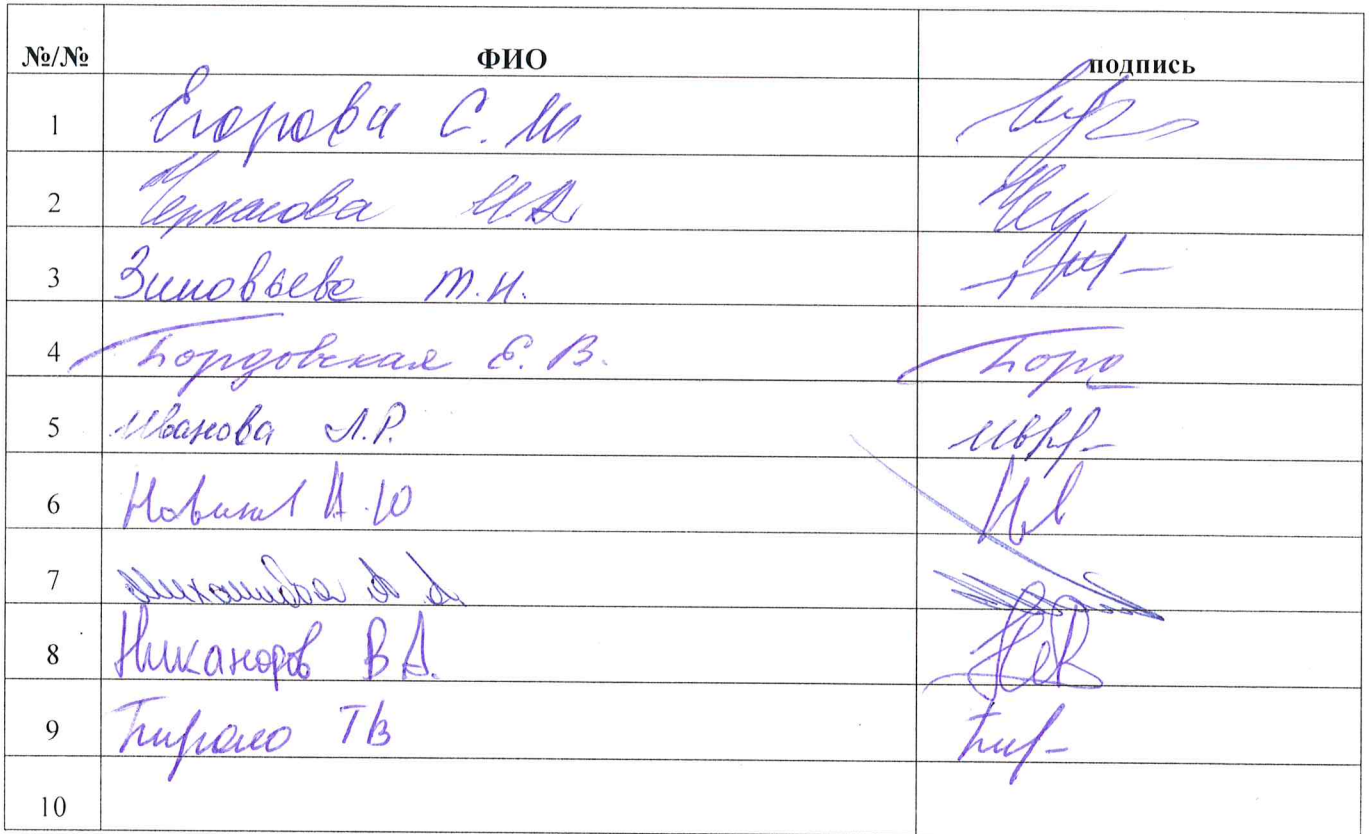 №/№ ФИО подпись
1 Егорова С. М
2 Черкасова И А
3 Зиновьева Т.Н.
4 Бордовская Е. В. Борд
5 Иванова Л.Р.
6 Новиков А.Ю
7 Михайлова А А
8 Никаноров В А.
9 ТВ Бир-
10